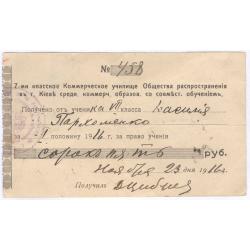 № 458
7-ми классное Коммерческое училище Общества распространенія
въ г. Кіевѣ средн. коммерч. образов. со совмѣст. обученіемъ.
Получено отъ ученика VII класса Василія
Пархоменко
за I половину 1916 г. за право ученія
сорокъ пять руб.
Ноября 23 дня 1916 г.
Получилъ